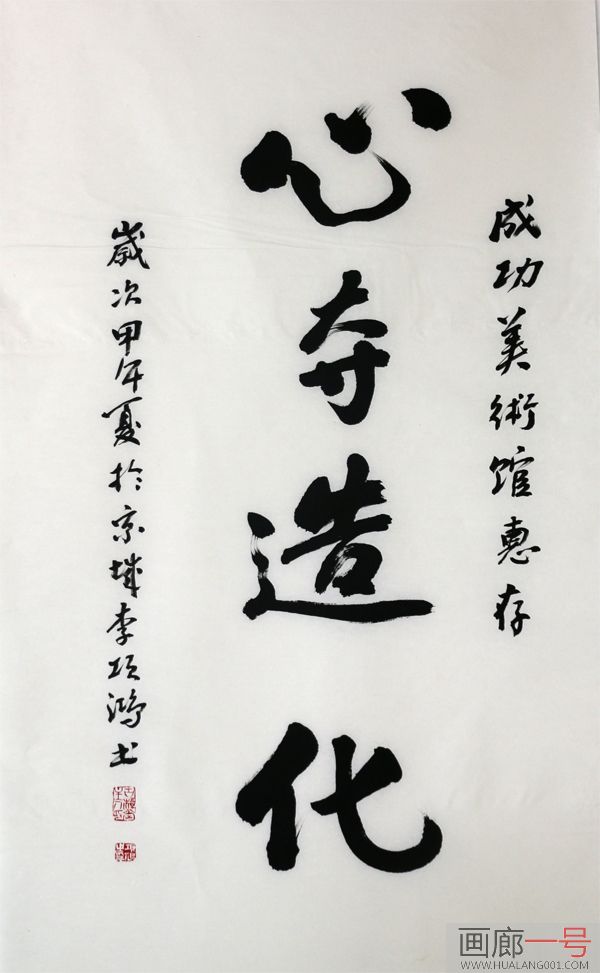 成功美術馆惠存
心夺造化
歲次甲午夏於京城李项鸿书
画廊一号
WWW.HUALANG001.COM